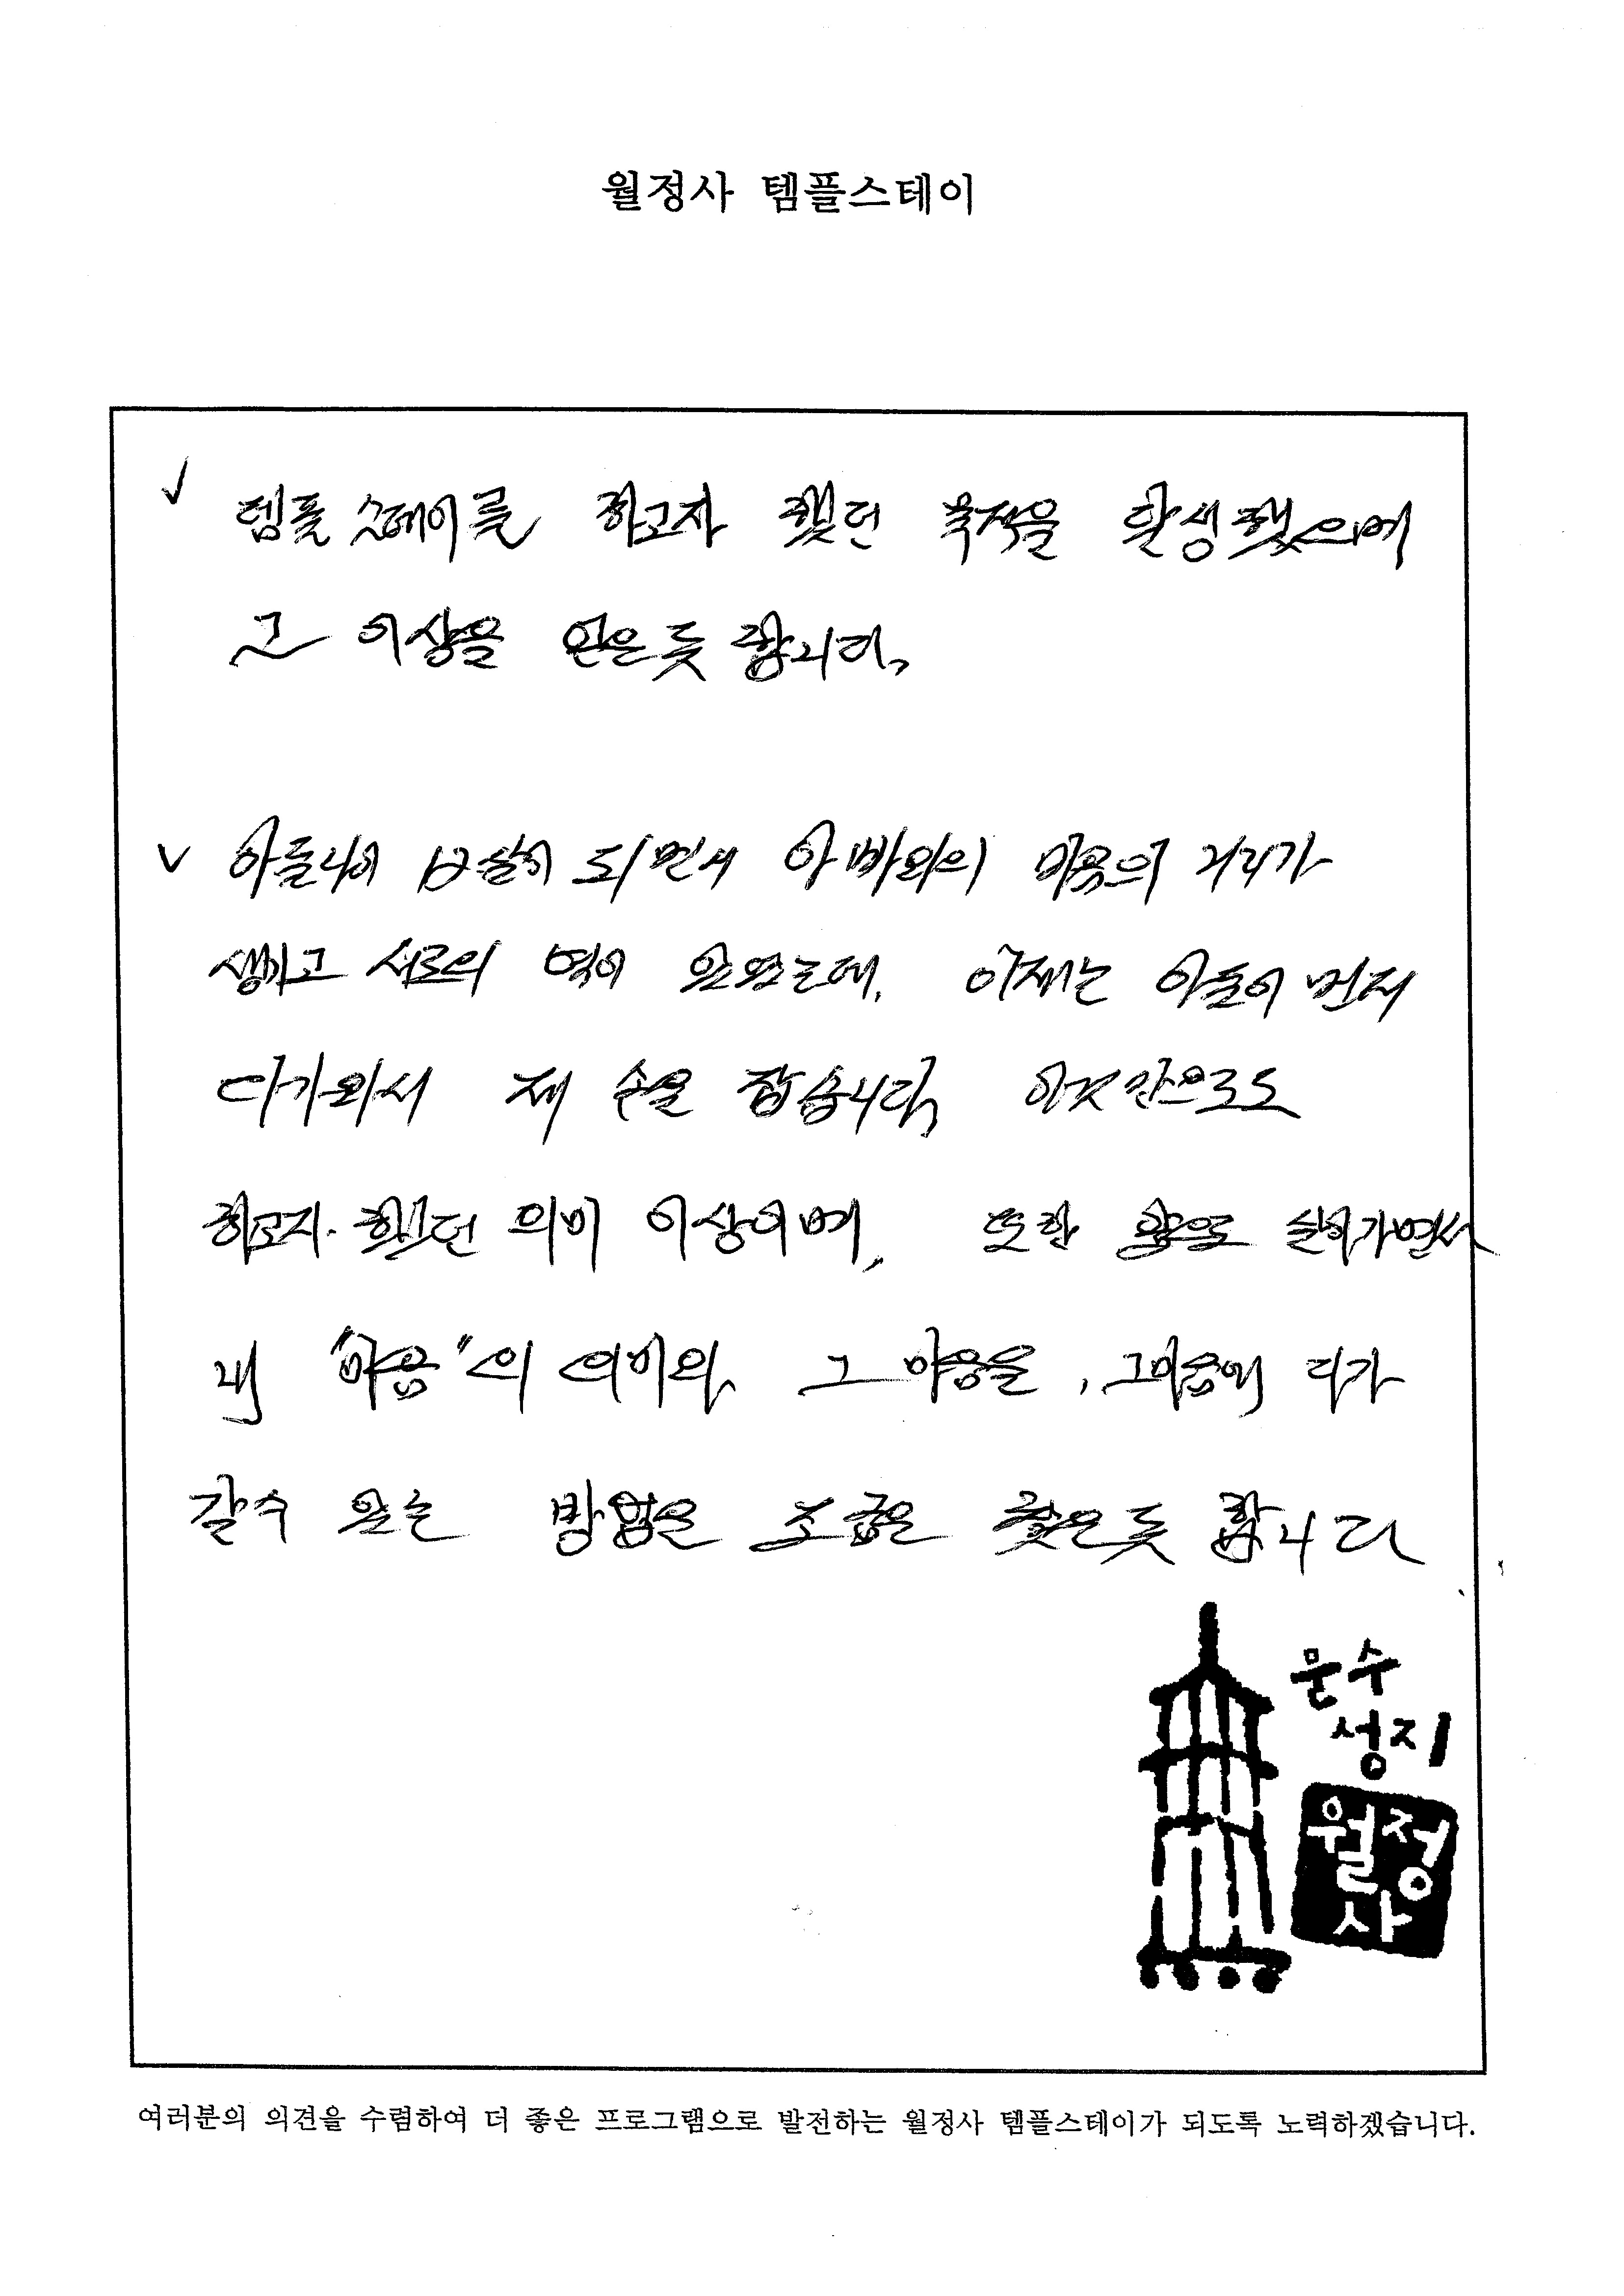 월정사 템플스테이
✓ 템플스테이를 하고자 했던 목적을 달성했으며
그 이상을 얻은듯 합니다.
✓ 아들나이 12살이 되면서 아빠와의 마음의 거리가
생기고 서로의 벽이 있었는데, 이제는 아들이 먼저
다가와서 제 손을 잡습니다. 이것만으로도
하고자 했던 의미 이상이며, 또한 앞으로 살아가면서
내 "마음"의 의미와 그 마음을, 그마음에 다가
갈수 있는 방법을 조금은 찾은듯 합니다
문수
성지
월정
사
여러분의 의견을 수렴하여 더 좋은 프로그램으로 발전하는 월정사 템플스테이가 되도록 노력하겠습니다.